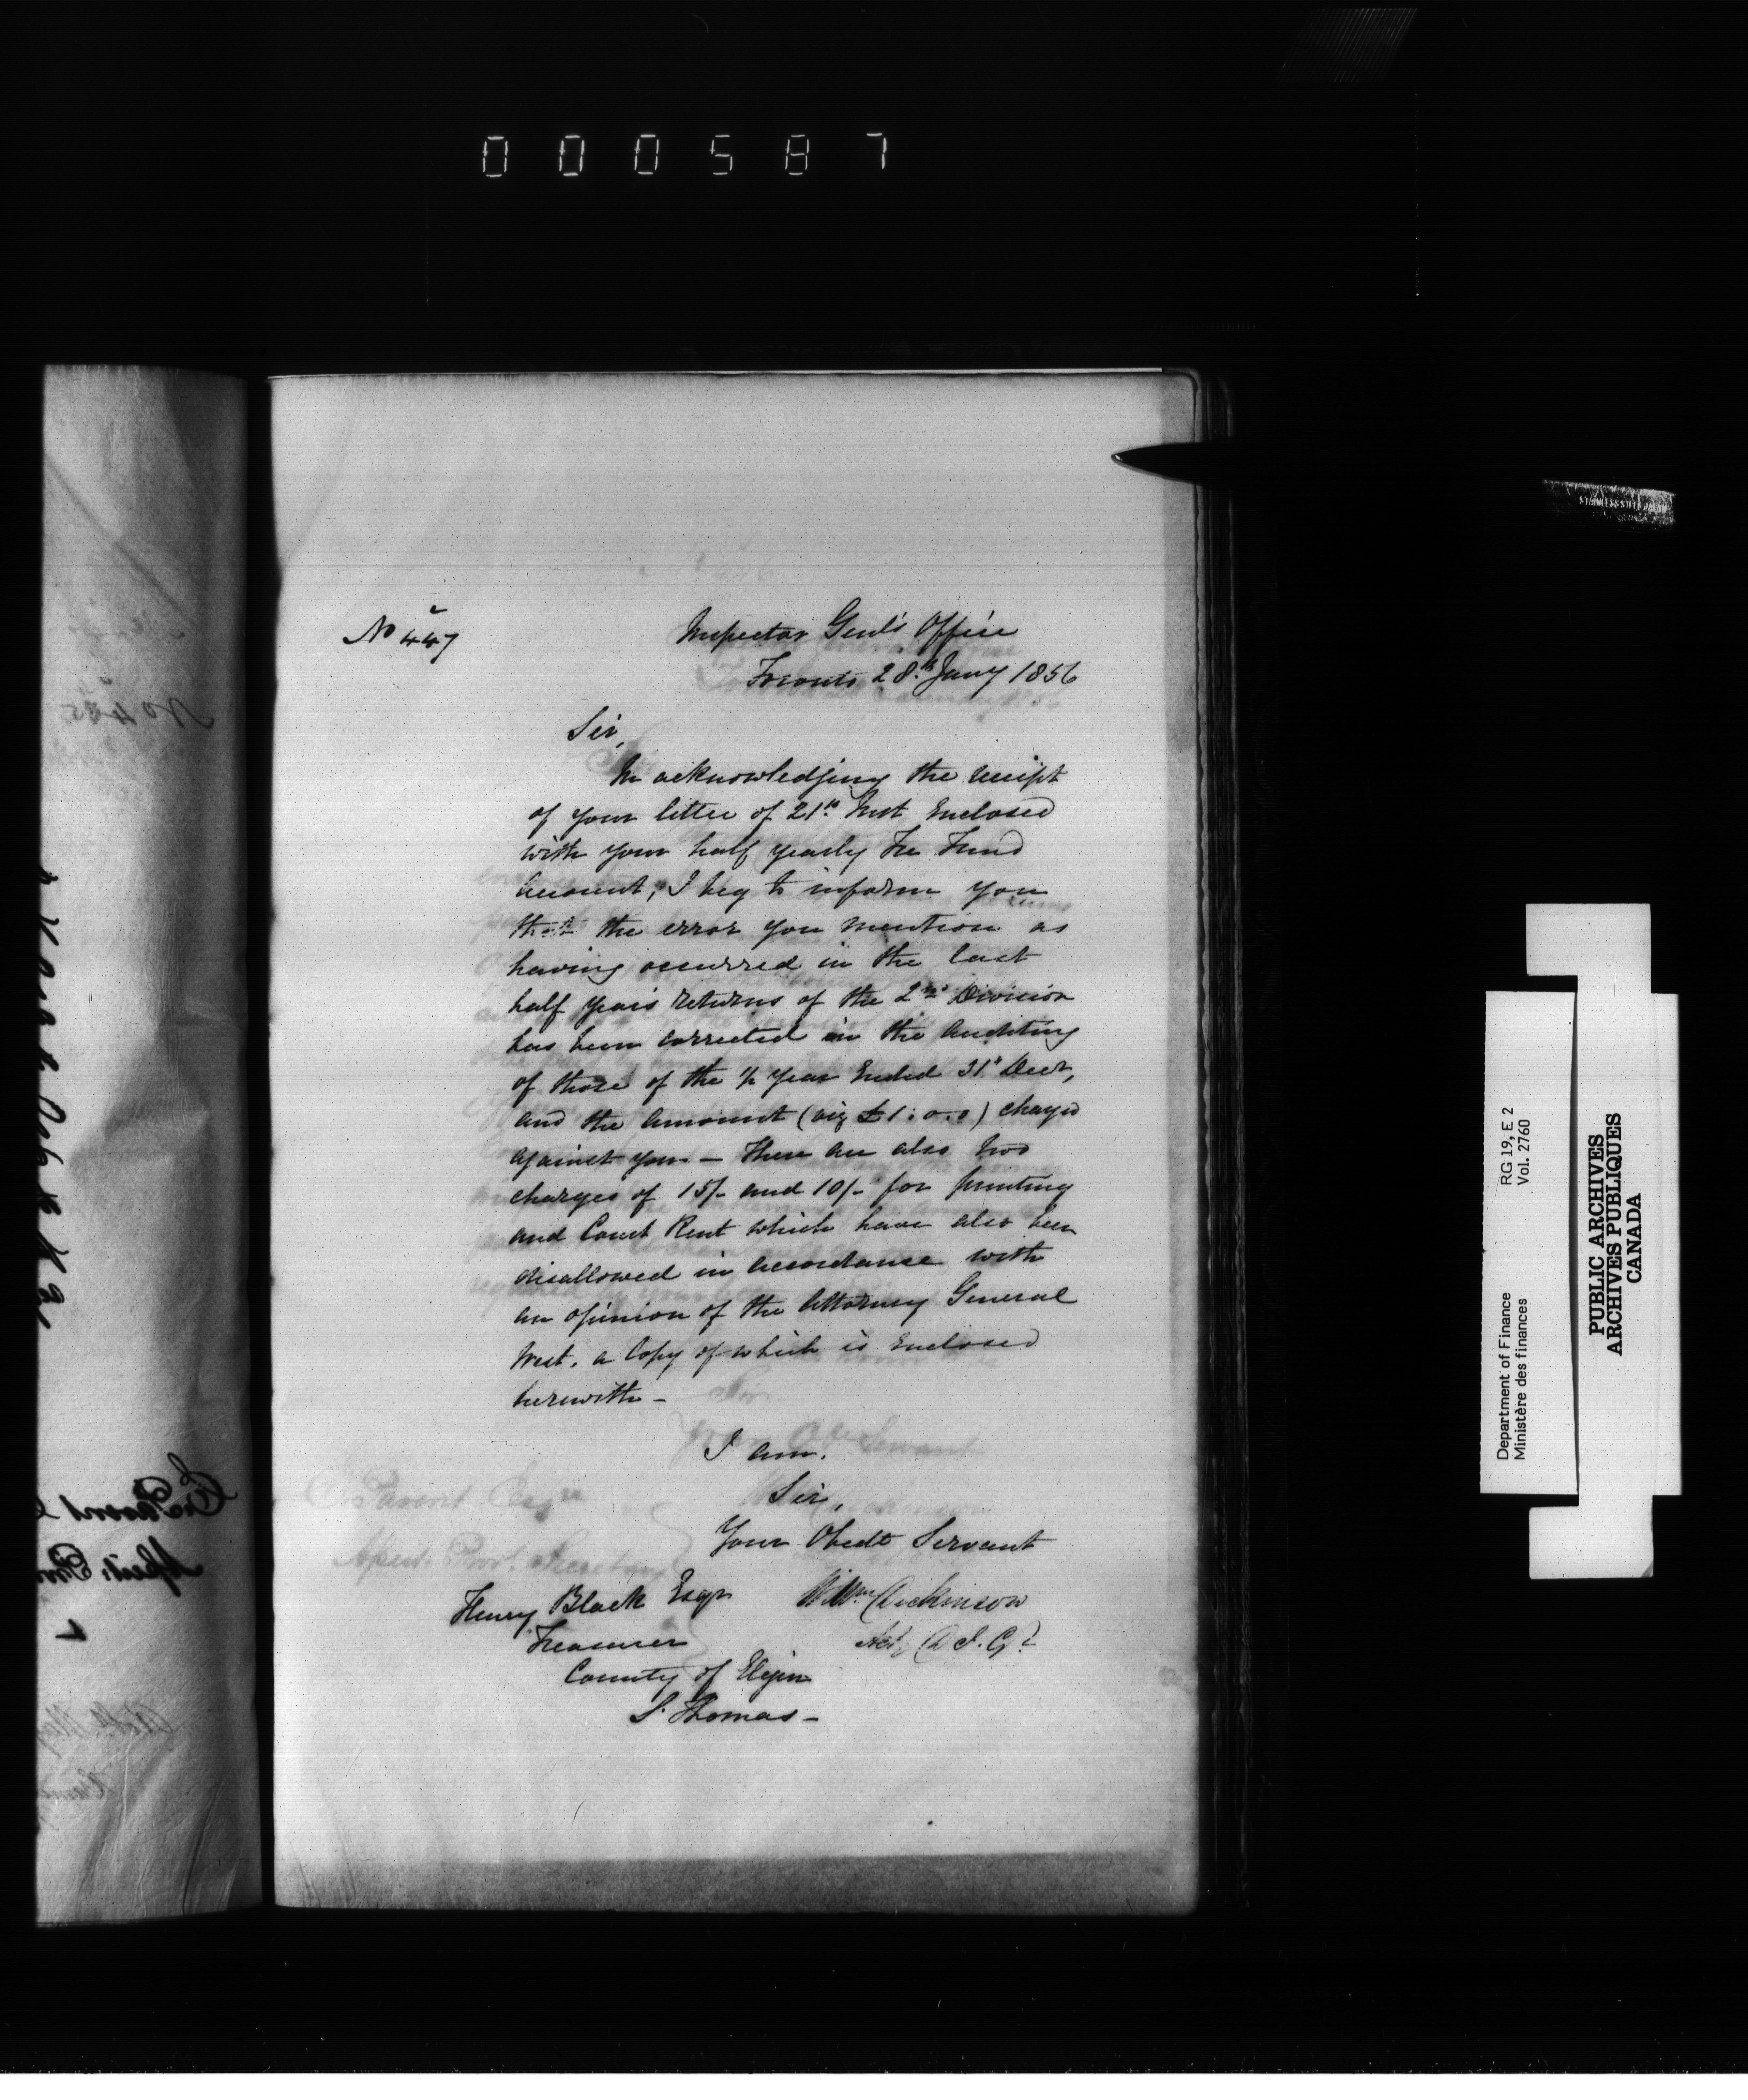 000587
No 447
Inspector Genl's Office
Toronto 28th Jany 1856
Sir,
In acknowledging the receipt
of your letter of 21st Inst Enclosed
with your half yearly Fee Fund
Account, I beg to inform you
that the error you mention as
having occurred in the last
half years returns of the 2nd Division
has been corrected in the Auditing
of those of the ½ year Ended 31st Decr,
and the amount (viz £1:0:0) charged
against you — There are also two
charges of 15/- and 10/- for printing
and Court Rent which have also been
disallowed in accordance with
an opinion of the Attorney General
West, a Copy of which is Enclosed
herewith —
I am,
Sir,
Your Obedt Servant
Wm Dickinson
Actg D I. Gl
Henry Black Esqr
Treasurer
County of Elgin
St Thomas —
No 445
Department of Finance
Ministère des finances
RG 19, E 2
Vol. 2760
PUBLIC ARCHIVES
ARCHIVES PUBLIQUES
CANADA